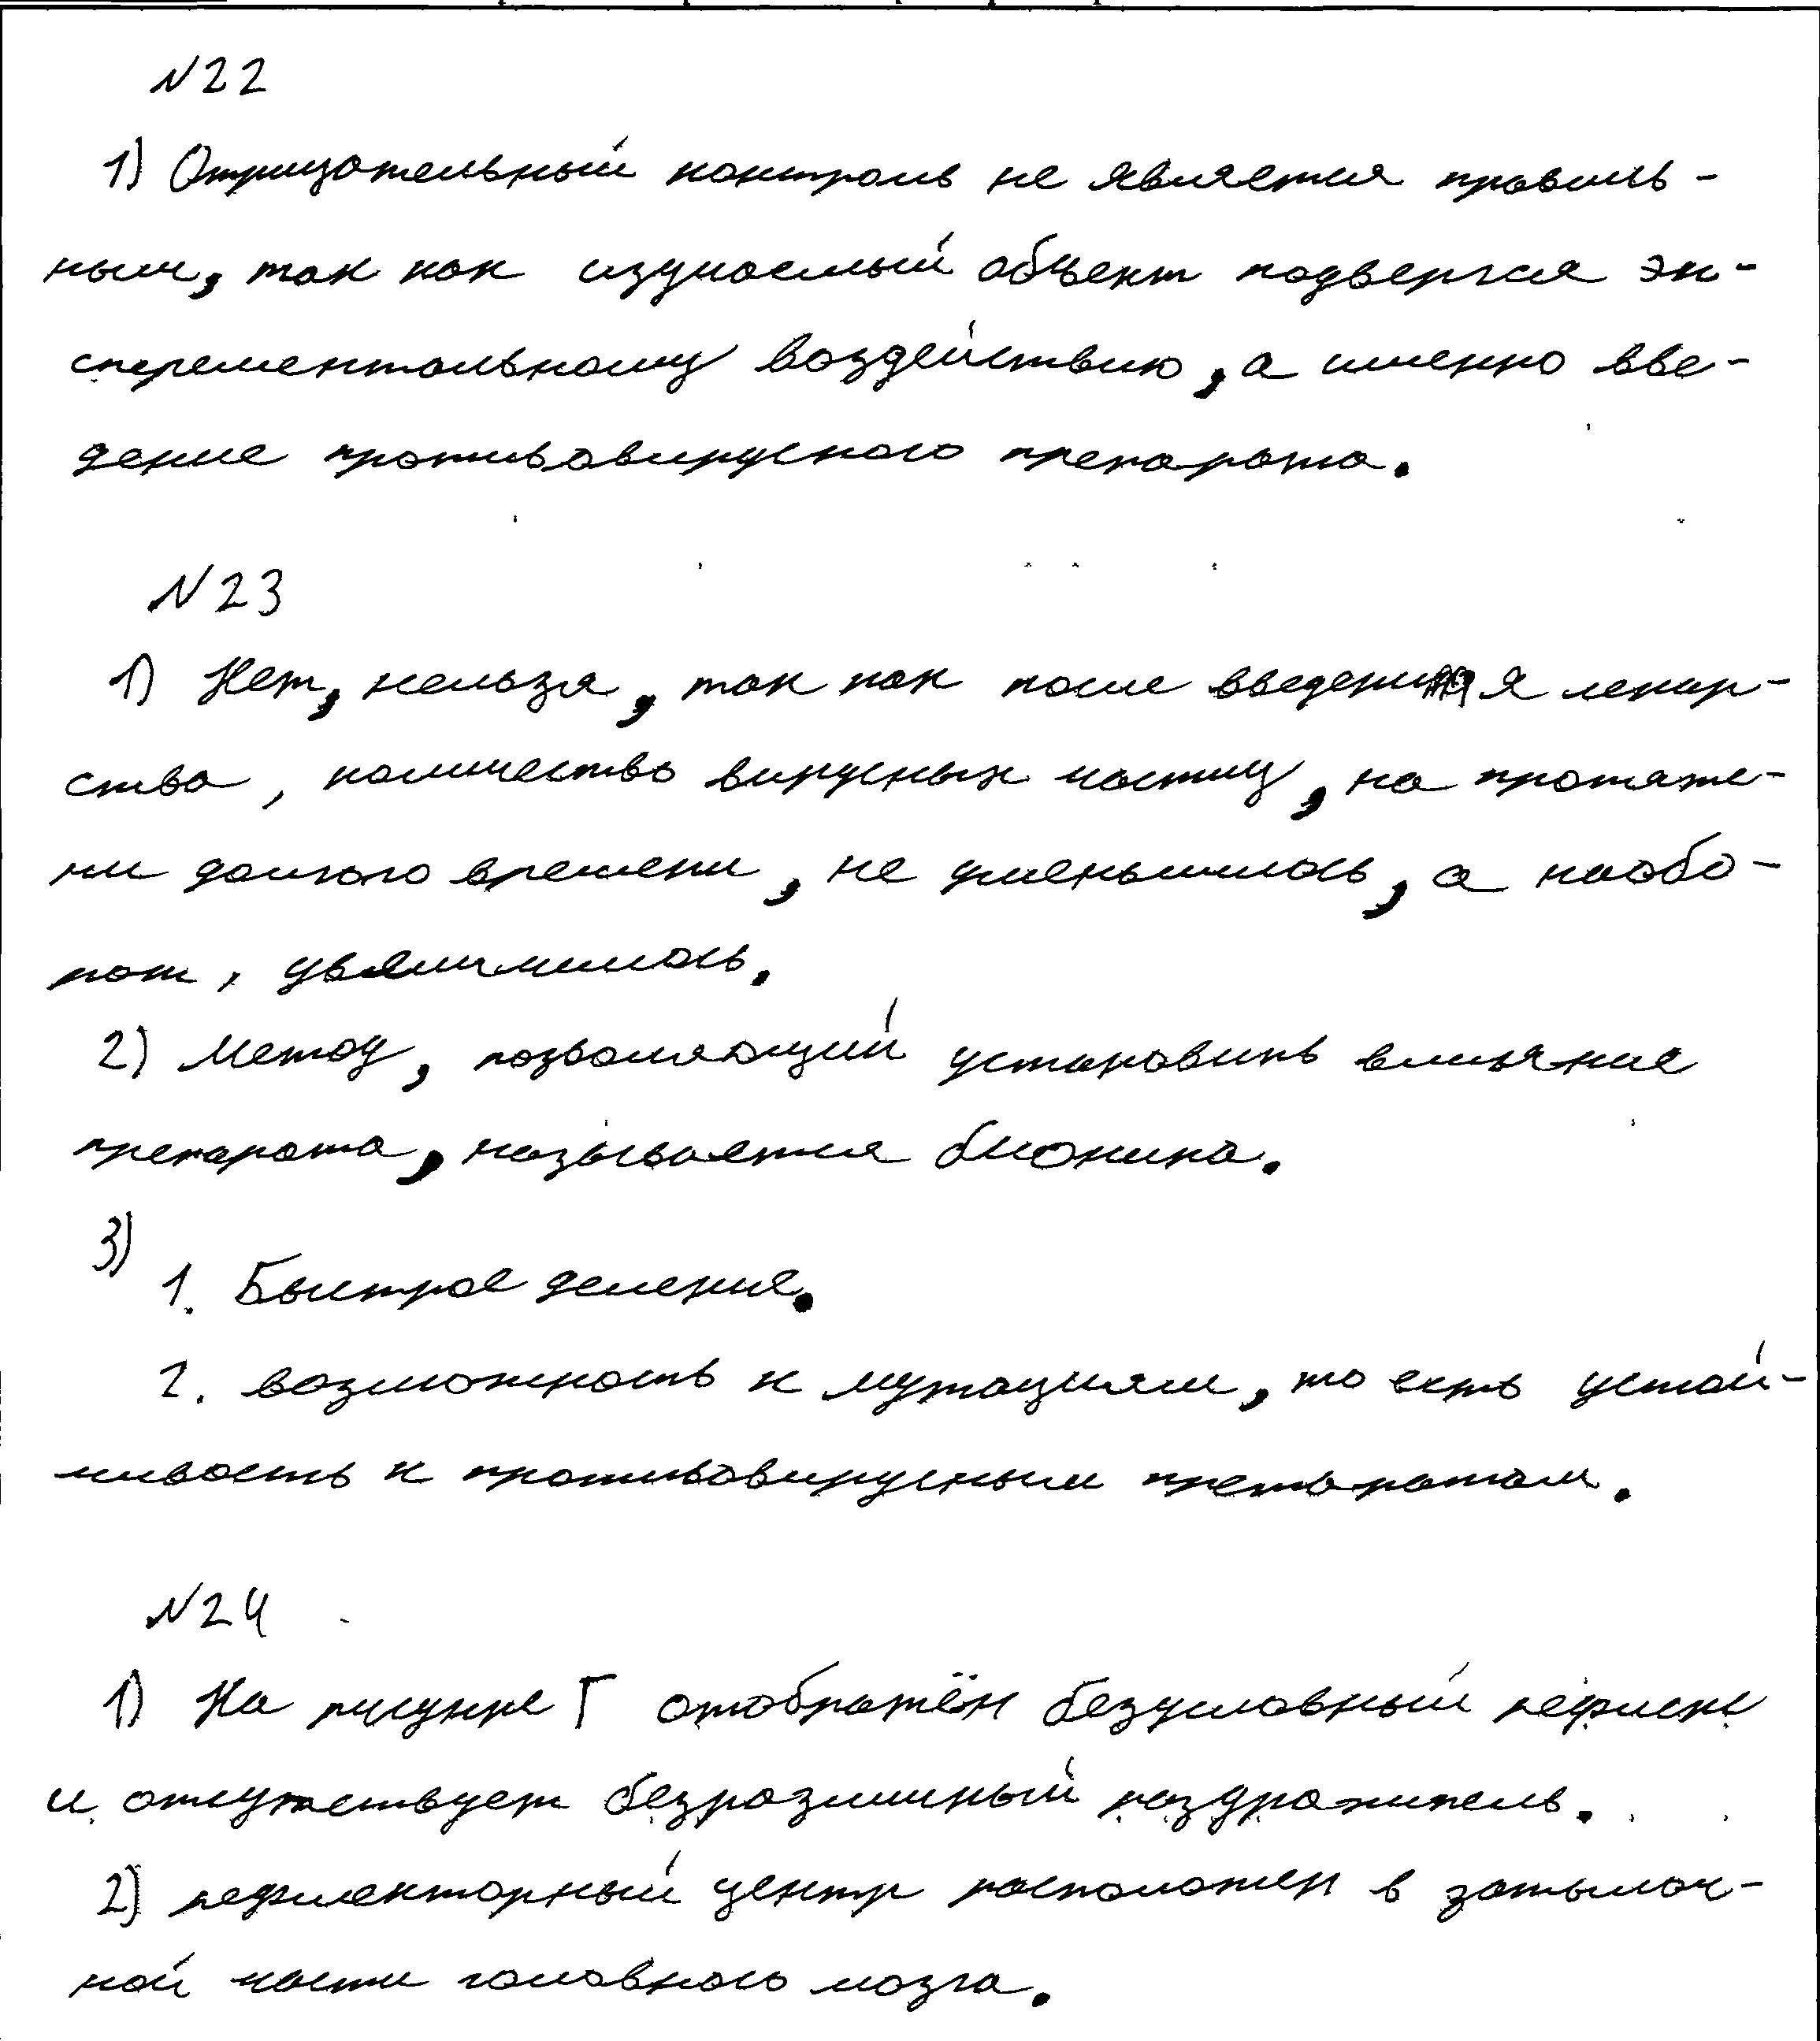 №22
1) Отрицательный контроль не является правиль-
ным, так как изучаемый объект подвергся эк-
сперементальному воздействию, а именно вве-
дение противовирусного препарата.
№23
1) Нет, нельзя, так как после введения лекар-
ства, количество вирусных частиц, на протяже-
нии долгого времени, не уменьшилось, а наобо-
рот, увеличилось.
2) Метод, позволяющий установить влияние
препарата, называется бионика.
3)
1. Быстрое деление.
2. возможность к мутациям, то есть устой-
чивость к противовирусным препаратам.
№24
1) На рисунке Г отображён безусловный рефлекс
и отсутствует безразличный раздражитель.
2) рефлекторный центр расположен в затылоч-
ной части головного мозга.